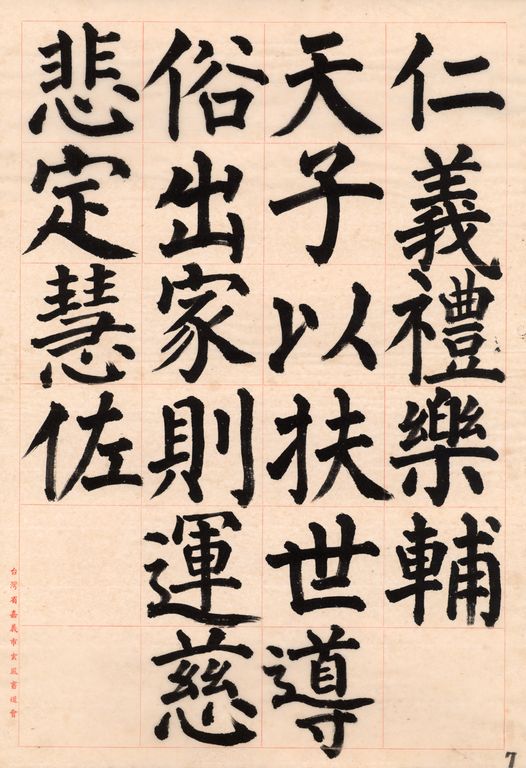 仁義禮樂輔
天子以扶世導
俗出家則運慈
悲定慧佐
台灣省嘉義市玄風書道會
7